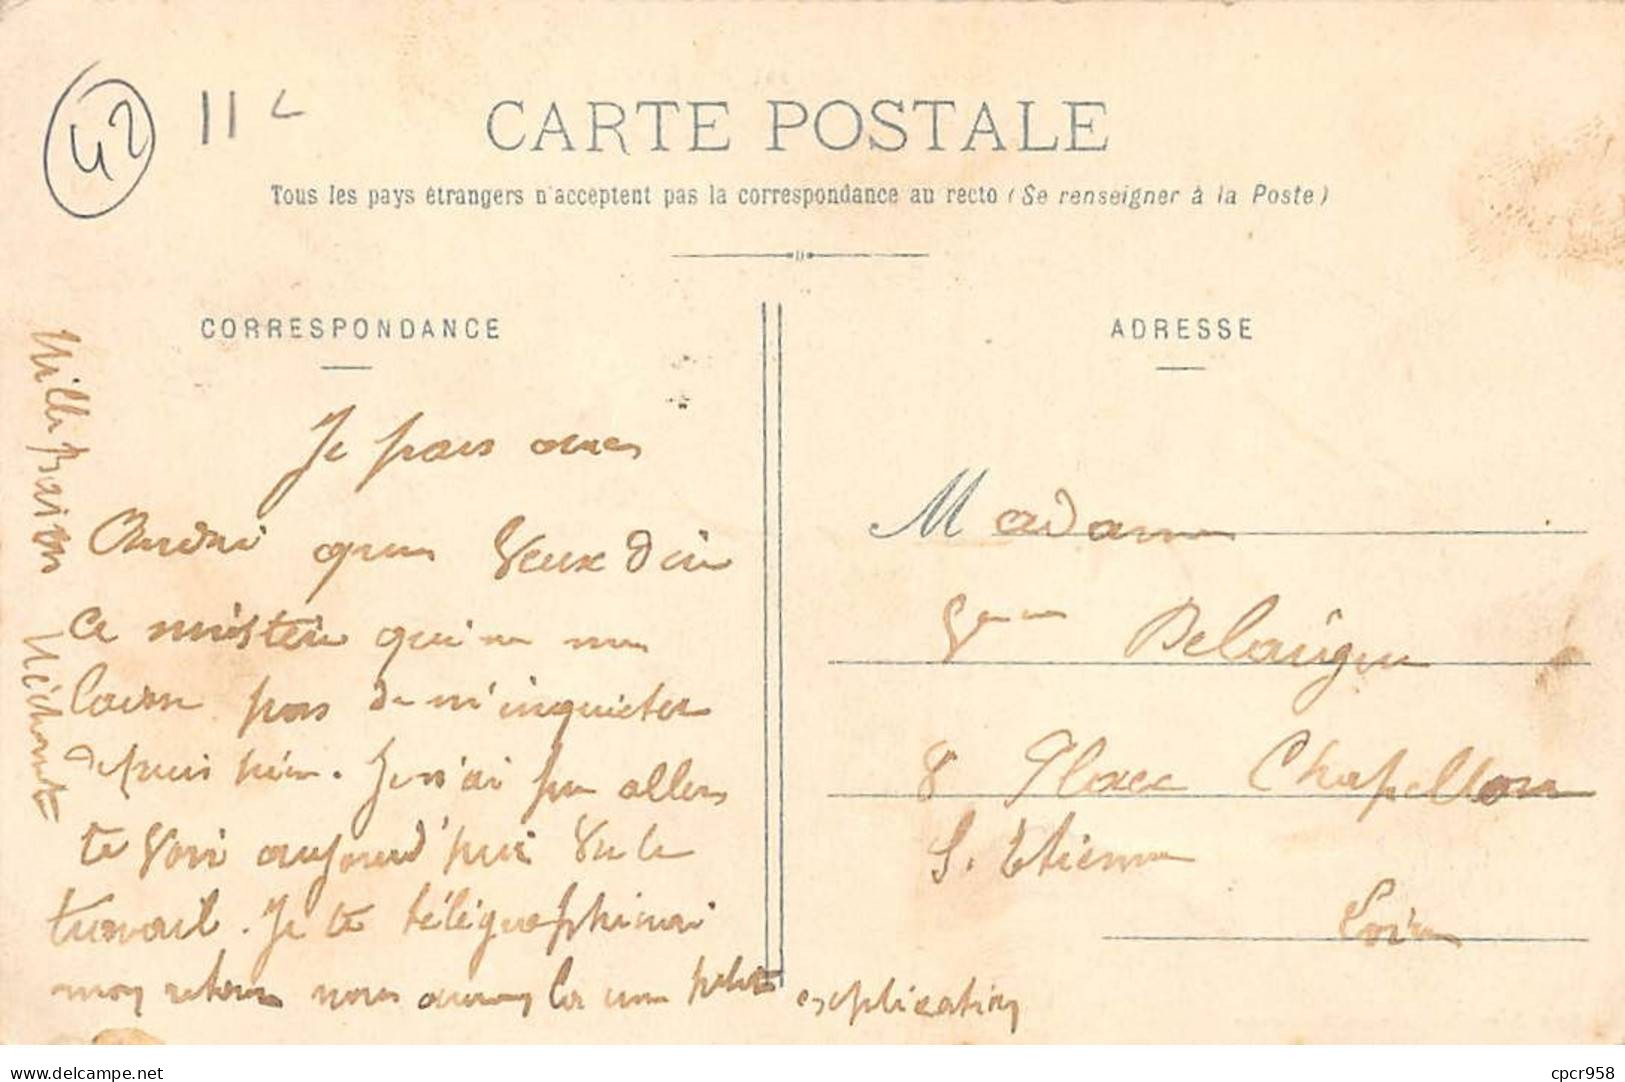 42 11
CARTE POSTALE
Tous les pays étrangers n'acceptent pas la correspondance au recto (Se renseigner à la Poste)
CORRESPONDANCE
ADRESSE
Je pars
que Veux dire
ce mistère qui ne me
laisse pas de m'inquieter
depuis hier. Je n'ai pu aller
te Voir aujourd'hui Vu le
travail. Je te télégraphierai
mon retour nous aurons la une petite explication
Mille Baisers Méchante
Madame
Delaigue
8 Place Chapellon
S. Etienne
Loire
delcampe.net
cpcr958